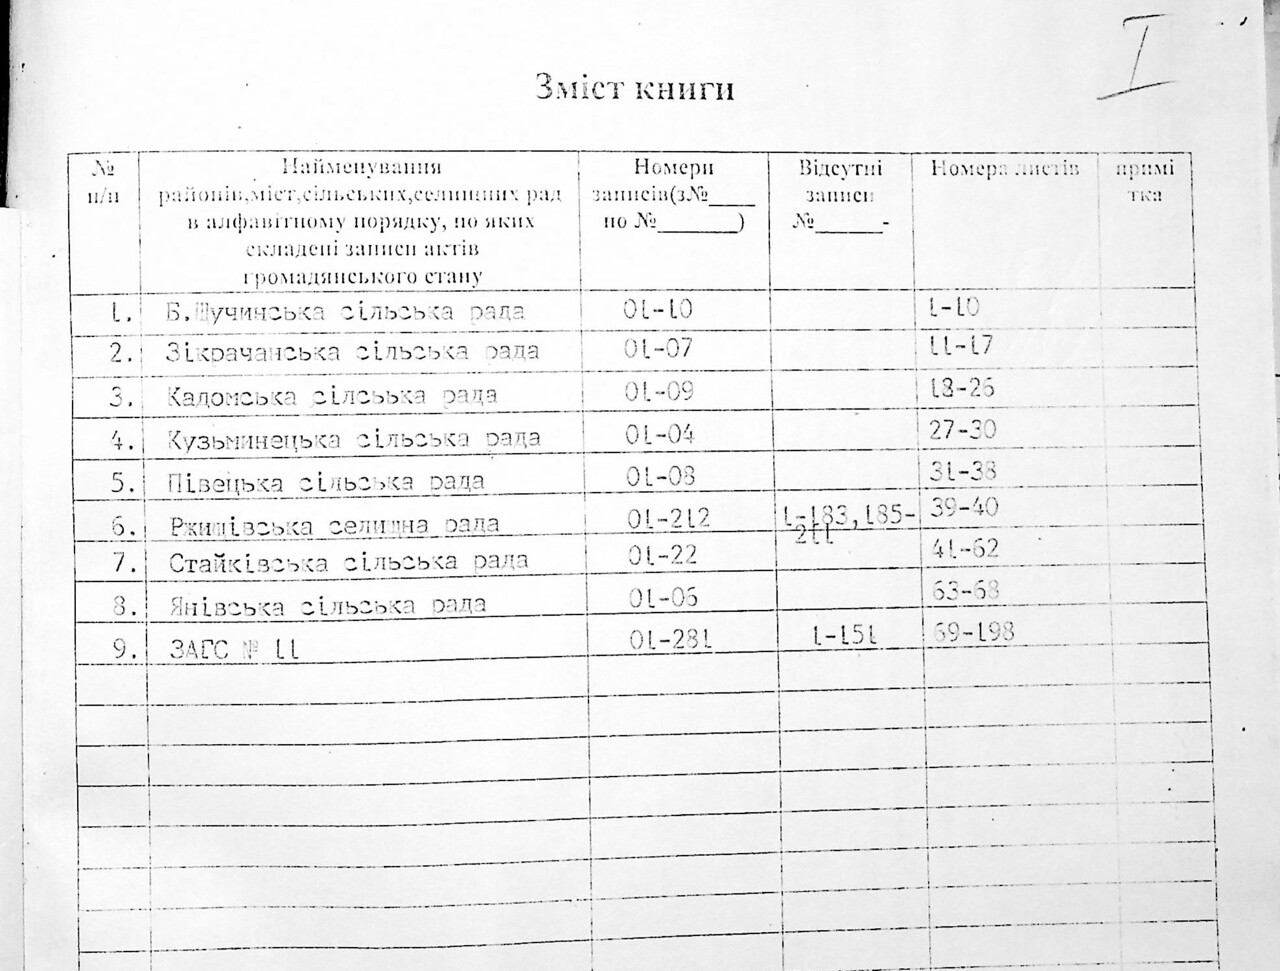 I
Зміст книги
№ п/п
Найменування
районів,міст,сільських,селищних рад
в алфавітному порядку, по яких
складені записи актів
громадянського стану
Номери
записів(з№____
по №_______)
Відсутні
записи
№______-
Номера листів
примі
тка
1. Б.Щучинська сільська рада 01-10 1-10
2. Зікрачанська сільська рада 01-07 11-17
3. Кадомська сілсьька рада 01-09 18-26
4. Кузьминецька сільська рада 01-04 27-30
5. Півецька сільська рада 01-08 31-38
6. Ржищівська селищна рада 01-212 1-183,185- 39-40
211
7. Стайківська сільська рада 01-22 41-62
8. Янівська сільська рада 01-06 63-68
9. ЗАГС № 11 01-281 1-151 69-198